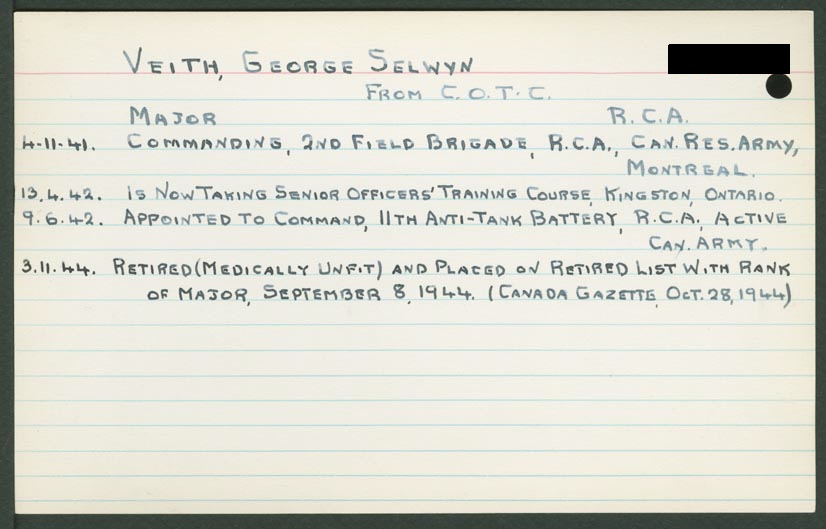 VEITH, GEORGE SELWYN
FROM C.O.T.C.
MAJOR R.C.A.
4-11-41. COMMANDING, 2ND FIELD BRIGADE, R.C.A., CAN. RES. ARMY,
MONTREAL.
13.4.42. IS NOW TAKING SENIOR OFFICERS' TRAINING COURSE, KINGSTON, ONTARIO.
9.6.42. APPOINTED TO COMMAND, 11TH ANTI-TANK BATTERY, R.C.A., ACTIVE
CAN. ARMY.
3.11.44. RETIRED (MEDICALLY UNFIT) AND PLACED ON RETIRED LIST WITH RANK
OF MAJOR, SEPTEMBER 8, 1944. (CANADA GAZETTE, OCT. 28, 1944)